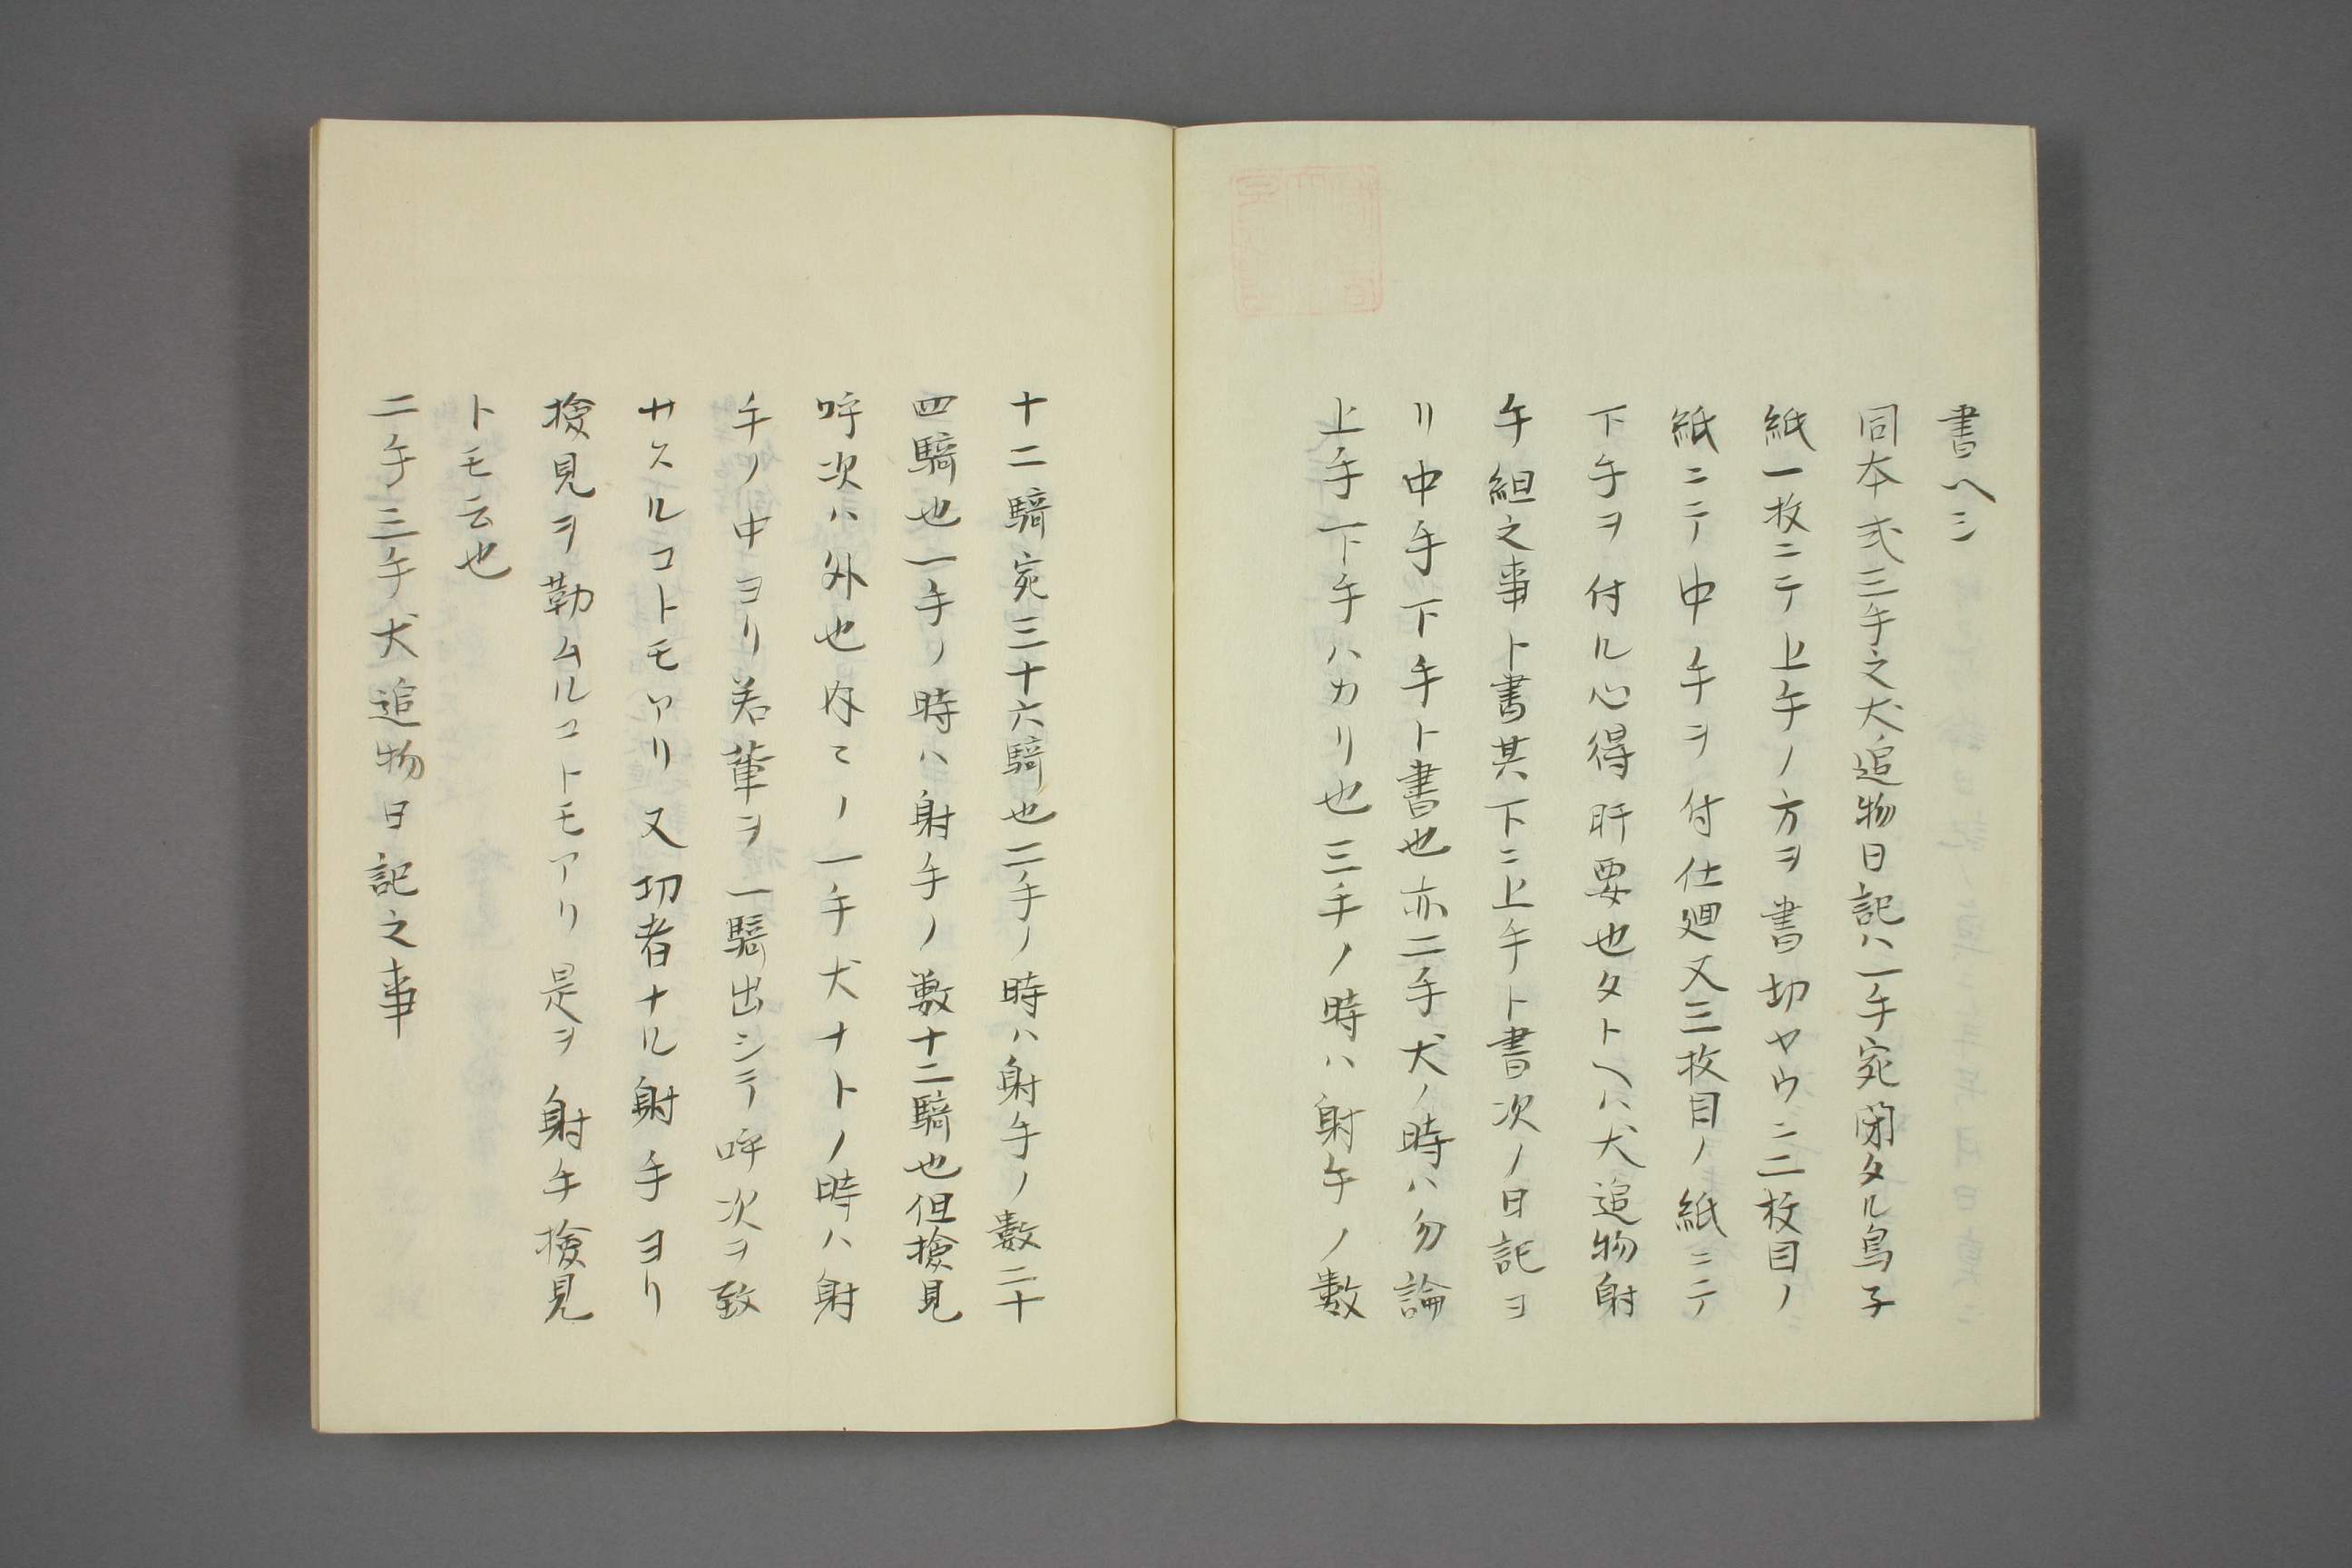 書ヘシ
同本式三手之犬追物日記ハ一手宛閉タル鳥子
紙一枚ニテ上手ノ方ヲ書切ヤウニ二枚目ノ
紙ニテ中手ヲ付仕廻又三枚目ノ紙ニテ
下手ヲ付ル心得肝要也タトヘハ犬追物射
手組之事ト書其下ニ上手ト書次ノ日記ヨ
リ中手下手ト書也亦二手犬ノ時ハ勿論
上手下手ハカリ也三手ノ時ハ射手ノ數
十二騎宛三十六騎也二手ノ時ハ射手ノ數二十
四騎也一手ノ時ハ射手ノ數十二騎也但撿見
呼次ハ外也内〻ノ一手犬ナトノ時ハ射
手ノ中ヨリ若輩ヲ一騎出シテ呼次ヲ致
サスルコトモアリ又切者ナル射手ヨリ
撿見ヲ勤ムルコトモアリ是ヲ射手撿見
トモ云也
二手三手犬追物日記之事